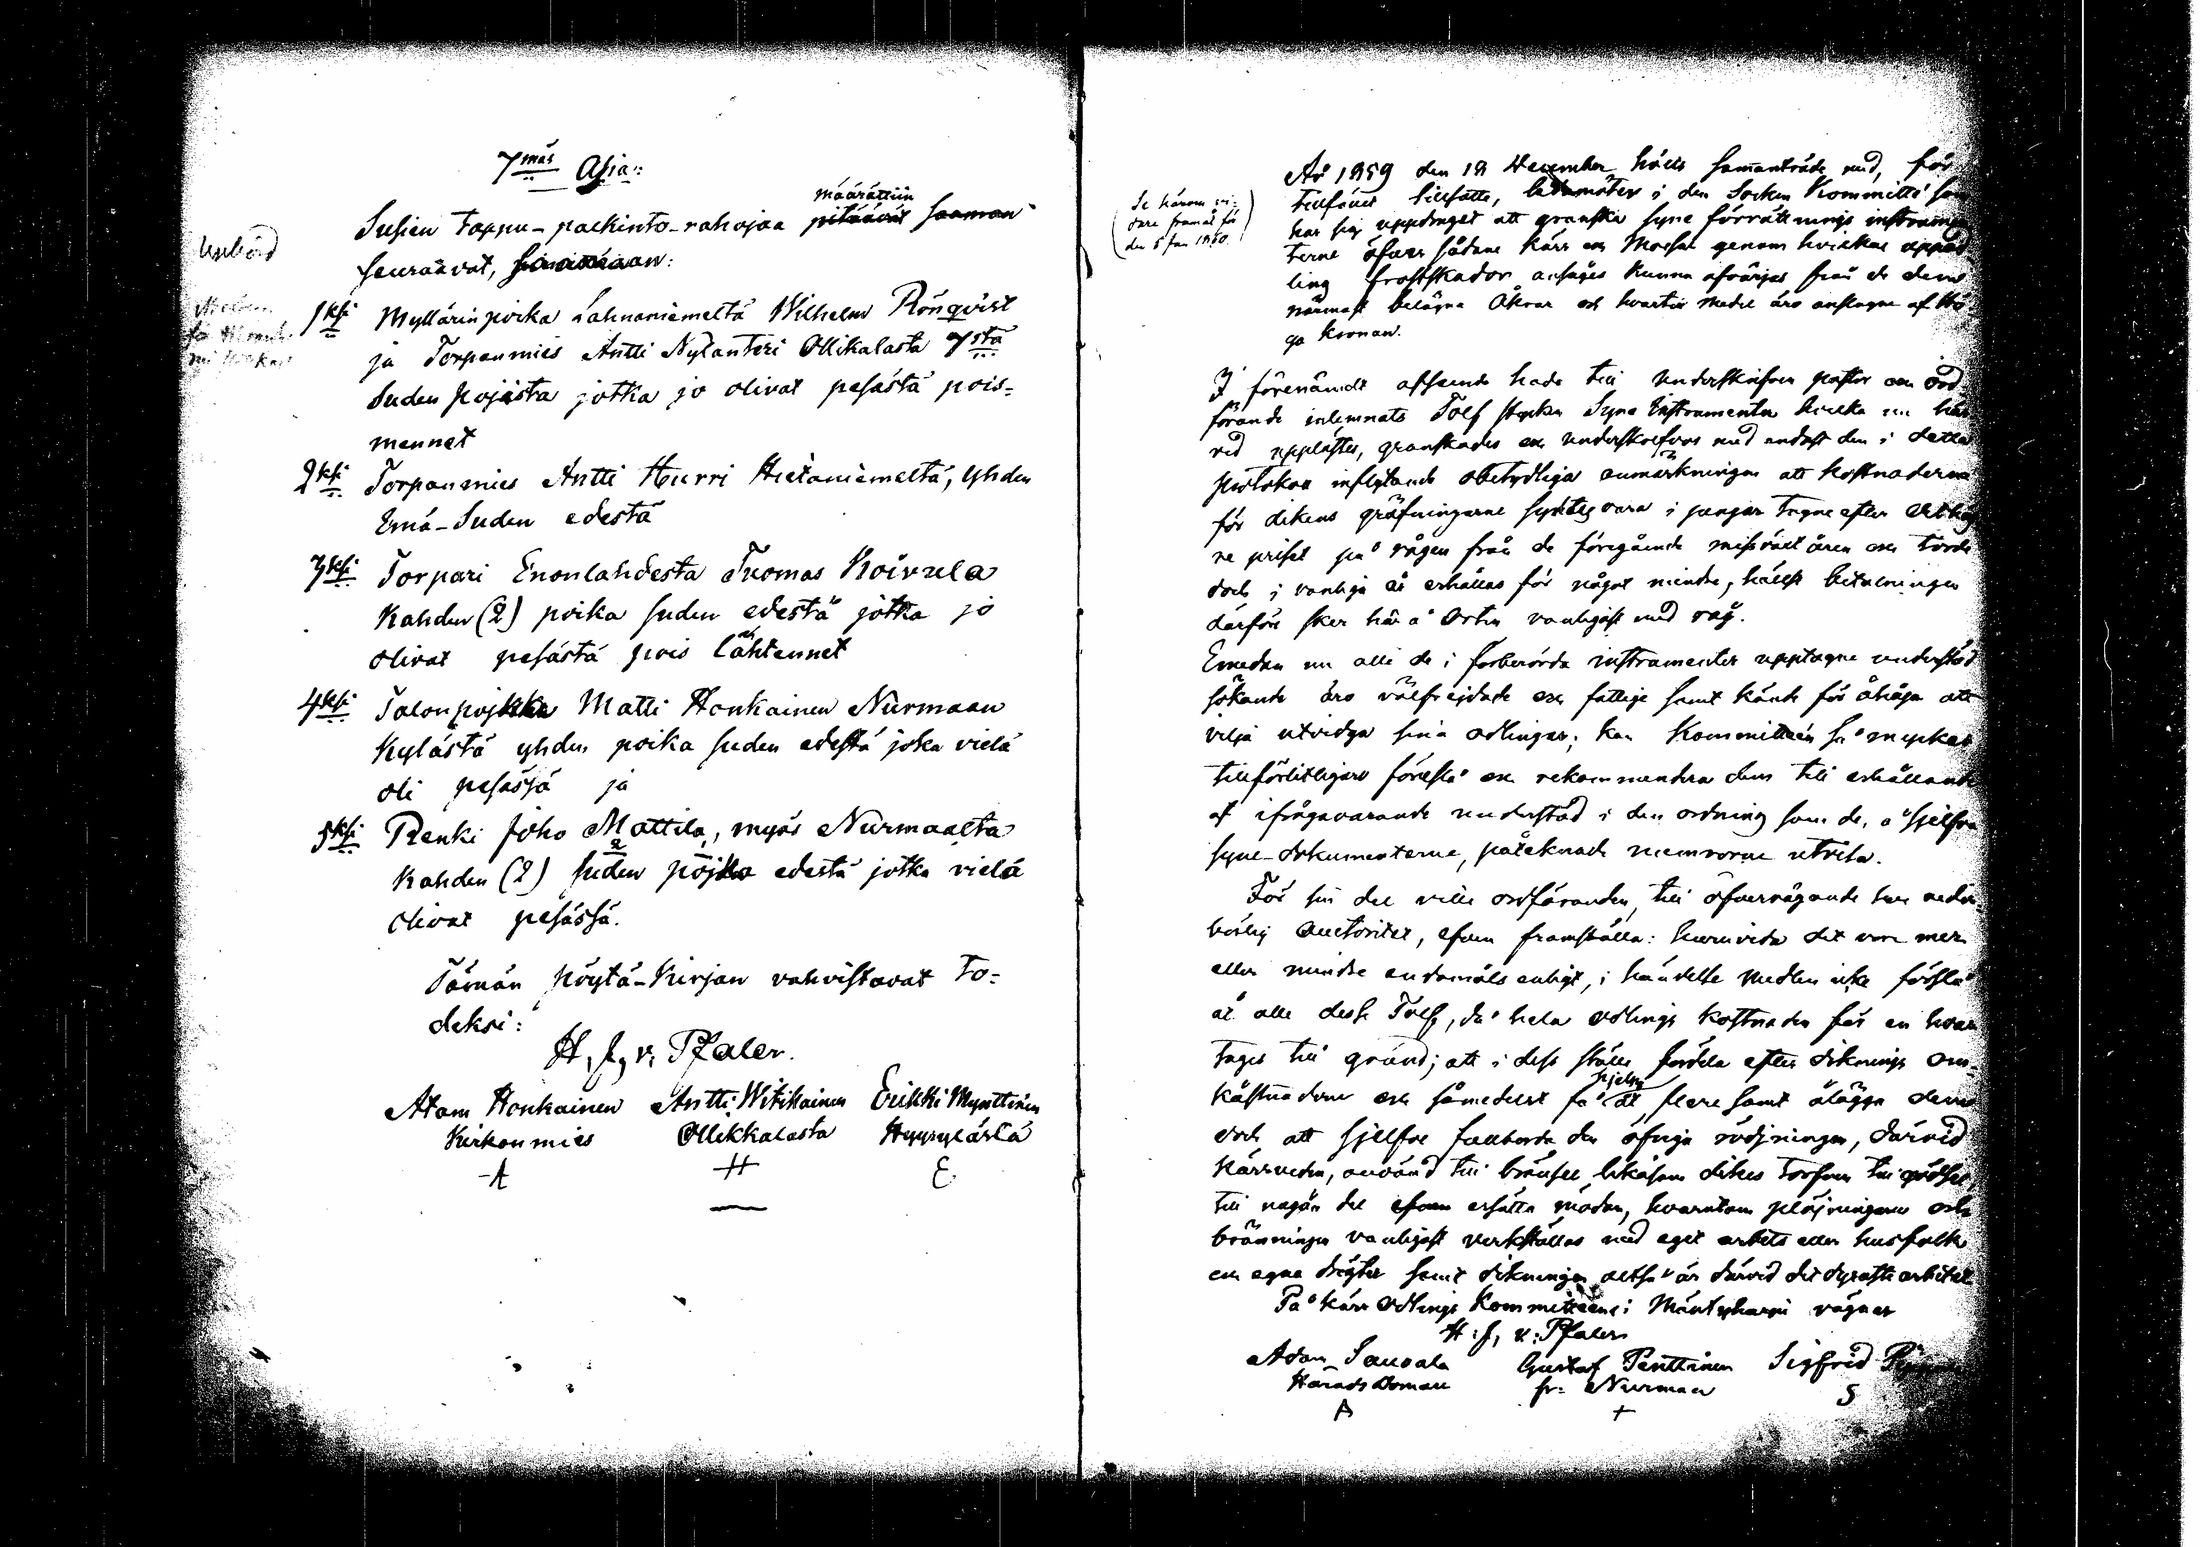 7mäs Asia:
Susien tappu-palkinto-rahojaa pitäävät määrättiin saaman
seuraavat,
1ksi Myllärin poika Lahnaniemeltä Wilhelm Rönqvist
ja Torpanmies Antti Nylanteri Ollikalasta 7stä
Suden pojista jotka jo olivat pesästä pois-
mennet
2ksi Torpanmies Antti Hurri Hietaniemeltä, yhden
Emä-Suden edestä
3ksi Torpari Enonlahdesta Tuomas Koivula
Kahden (2) poika suden edestä jotka jo
olivat pesästä pois lähtennet
4ksi Talonpojka Matti Honkainen Nurmaan
Kylästä yhden poika suden edestä joka vielä
oli pesässä ja
5ksi Renki Joho Mattila, myös Nurmaalta
Kahden (2) suden pojka edestä jotka vielä
olivat pesässä.
Tämän Pöytä-Kirjan vahvistavat to-
deksi:
H. J. v. Pfaler.
Atam Honkainen Antti Witikainen Erikki Mynttinen
Kirkonmies Ollikkalasta Hyyrylästä
A H E
Se härom vi-
dare framåt för
den 5 Jan 1860.
År 1859 den 18 December hölls sammanträde med, för
tillfället tillsatte, ledamöter i den Socken Kommitté som
har sig uppdraget att granska Syne förrättnings instrumen
terne öfver sådane kärr och Mossar genom hvilkas uppod
ling frostskador anseges kunna afvärjas från de dem
närmast belägna Åkrar och hvartill medel äro anslagne af Hö-
ga Kronan.
I förenämdt afseende hade till Underskrifven pastor och ord
förande inlemnats Tolf stycken Syne Instrumenter hvilka nu här
vid upplästes, granskades och underskrefvos med endast den i detta
protokoll inflytande obetydliga anmärkningen att kostnaderna
för dikens gräfningarne synes vara i pengar tagne efter
ne priset på rågen från de föregående missväxt åren och torde
dock i vanliga år erhållas för något mindre, hälst betalningen
därför sker här å Orten vanligast med råg.
Emedan nu alle de i förberörda instrumenter upptagne understöd
sökande äro välfrejdade och fattige samt kände för åhåga att
vilja utvidga sina odlingar; kan Kommittéen så mycket
tillförlitligare föreslå och rekommendera dem till erhållande
af ifrågavarande understöd i den ordning som de, å sjelfva
syne-dokumenterne, påteknade numrorne utvisa.
För sin del ville ordföranden, till öfvervägande hos veder-
börlig Auctoritet, äfven framställa: huruvida det vore mer
eller mindre ändamåls enligt, i händelse medlen icke förslå
åt alle dessa Tolf, då hela odlings kostnaden för en hvar
tages till grund; att i dess ställe fördela efter diknings om-
kåstnaderne och såmedelst få hjelpa åt flere samt ålägga dem
dock att sjelfve fullborda den öfriga rödjningen, därvid
Kärrveden, använd till bränsle likasom dikes torfven till gödsel,
till någån del äfven ersätta mödan, hvarutom plöjningarne och
bränningen vanligast verkställas med eget arbets eller husfolk
och egna dragter samt dikningen altså är därvid det dyraste arbetet
På Kärr Odlings Kommittéens i Mäntyharju vägnar
H. J. v. Pfaler
Adam Sauvala Gustaf Penttinen Sigfrid
Härads Doman fr. Nurmaa
A + S